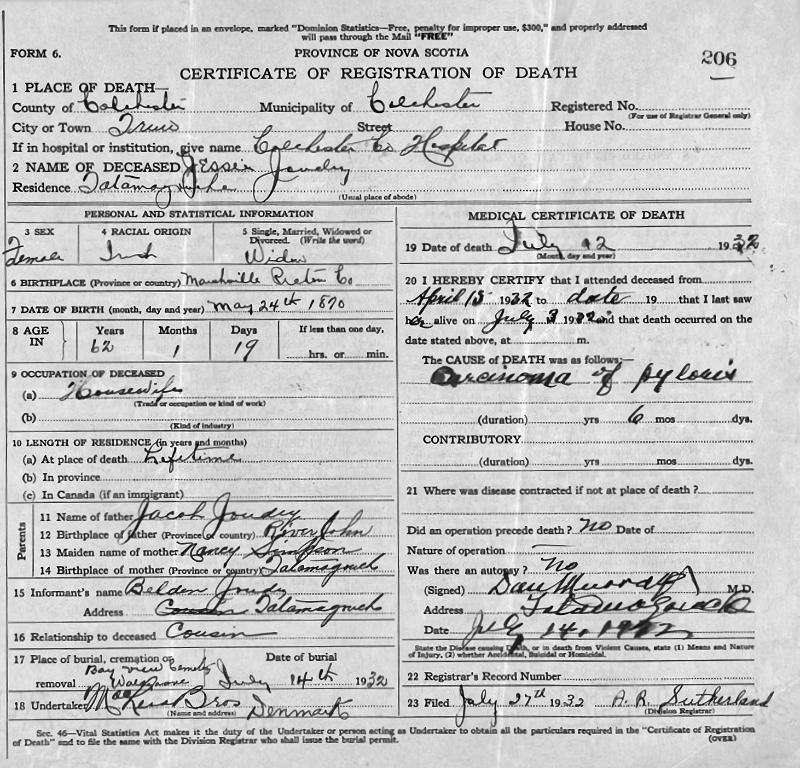 This form if placed in an envelope, marked "Dominion Statistics—Free, penalty for improper use, $300," and properly addressed
will pass through the Mail "FREE"
FORM 6.
PROVINCE OF NOVA SCOTIA
206
CERTIFICATE OF REGISTRATION OF DEATH
1 PLACE OF DEATH—
County of Colchester Municipality of Colchester Registered No.
(For use of Registrar General only)
City or Town Truro Street House No.
If in hospital or institution, give name Colchester Co Hospital
2 NAME OF DECEASED Jessie Joudry
Residence Tatamagouche
(Usual place of abode)
PERSONAL AND STATISTICAL INFORMATION
3 SEX 4 RACIAL ORIGIN 5 Single, Married, Widowed or
Divorced. (Write the word)
Female Irish Widow
6 BIRTHPLACE (Province or country) Marshville Pictou Co
7 DATE OF BIRTH (month, day and year) May 24th 1870
8 AGE IN Years Months Days If less than one day,
62 1 19 hrs. or min.
9 OCCUPATION OF DECEASED
(a) Housewife
(Trade or occupation or kind of work)
(b)
(Kind of industry)
10 LENGTH OF RESIDENCE (in years and months)
(a) At place of death Lifetime
(b) In province
(c) In Canada (if an immigrant)
Parents
11 Name of father Jacob Joudry
12 Birthplace of father (Province or country) River John
13 Maiden name of mother Nancy Simpson
14 Birthplace of mother (Province or country) Tatamagouch
15 Informant's name Belden Joudry
Address Cousin Tatamagouch
16 Relationship to deceased Cousin
17 Place of burial, cremation or Date of burial
Bay View Cemetry
removal July 14th 1932
18 Undertaker Bros Denmark
(Name and address)
MEDICAL CERTIFICATE OF DEATH
19 Date of death July 12 1932
(Month, day and year)
20 I HEREBY CERTIFY that I attended deceased from
April 15 1932 to date 19 that I last saw
her alive on July 3 1932 and that death occurred on
date stated above, at m.
The CAUSE OF DEATH was as follows:—
Carcinoma of pyloris
(duration) yrs 6 mos dys.
CONTRIBUTORY
(duration) yrs mos dys.
21 Where was disease contracted if not at place of death?
Did an operation precede death? No Date of
Nature of operation —
Was there an autopsy? No
(Signed) Dan Murray M.D.
Address Tatamagouche
Date July 14, 1932
State the Disease causing Death, or in death from Violent Causes, state (1) Means and Nature
of Injury, (2) whether Accidental, Suicidal or Homicidal.
22 Registrar's Record Number
23 Filed July 27th 1932 A. R. Sutherland
(Division Registrar)
Sec. 46—Vital Statistics Act makes it the duty of the Undertaker or person acting as Undertaker to obtain all the particulars required in the "Certificate of Registration
of Death" and to file the same with the Division Registrar who shall issue the burial permit.
(OVER)